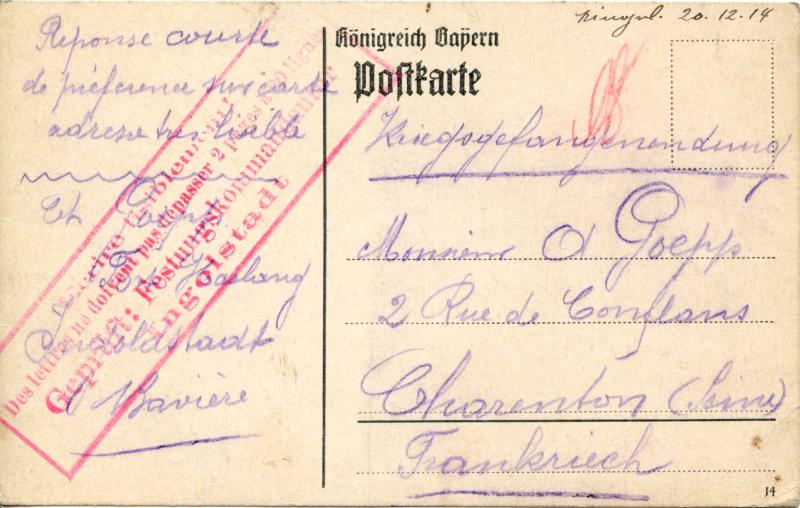 20.12.14
Königreich Bayern
Postkarte
Kriegsgefangenendung
Monsieur A Goepp
2 Rue de Conflans
Charenton (Seine)
Frankriech
14
Réponse courte
de préférence sur carte
adresse très lisible
Et Goepp
Fort Haslang
Ingolstadt
Bavière
Des lettres ne doivent pas dépasser 2 pages à 20 lignes
Geprüft: Festungskommandantur
Ingolstadt